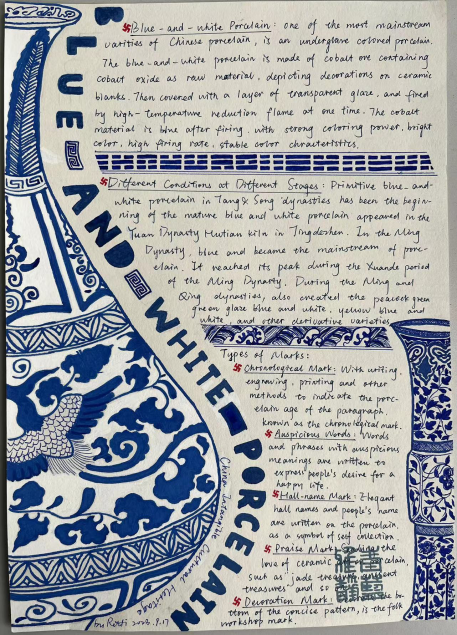 BLUE AND WHITE PORCELAIN
Blue-and-white Porcelain: one of the most mainstream
varities of Chinese porcelain, is an underglave colored porcelain.
The blue-and-white porcelain is made of cobalt ore containing
cobalt oxide as raw material, depicting decorations on ceramic
blanks. Then covered with a layer of transparent glaze, and fired
by high-temperature reduction flame at one time. The cobalt
material is blue after firing, with strong coloring power, bright
color, high firing rate, stable color chracteristics.
Different Conditions at Different Stages: Primitive blue-and-
white porcelain in Tang & Song dynasties has been the begin-
ning of the mature blue and white porcelain appeared in the
Yuan Dynasty Hutian kiln in Jingdezhen. In the Ming
Dynasty, blue and became the mainstream of porc-
elain. It reached its peak during the Xuande period
of the Ming Dynasty. During the Ming and
Qing dynasties, also created the peacock green
green glaze blue and white, yellow blue and
white, and other derivative varieties.
Types of Marks:
Chronological Mark: With writing,
engraving, printing and other
methods to indicate the porc-
elain age of the paragraph,
known as the chronological mark.
Auspicious Words: Words
and phrases with auspicious
meanings are written to
express people's desire for a
happy life.
Hall-name Mark: Elegant
hall names and people's name
are written on the porcelain,
as a symbol of self collection.
Praise Mark: the
love of ceramic
such as "jade treasure, ancient
treasures" and so
Decoration Mark: the bo-
ttom of the concise pattern, is the folk
workshop mark.
China Intangible Cultural Heritage
by Rosti 2023.9.17